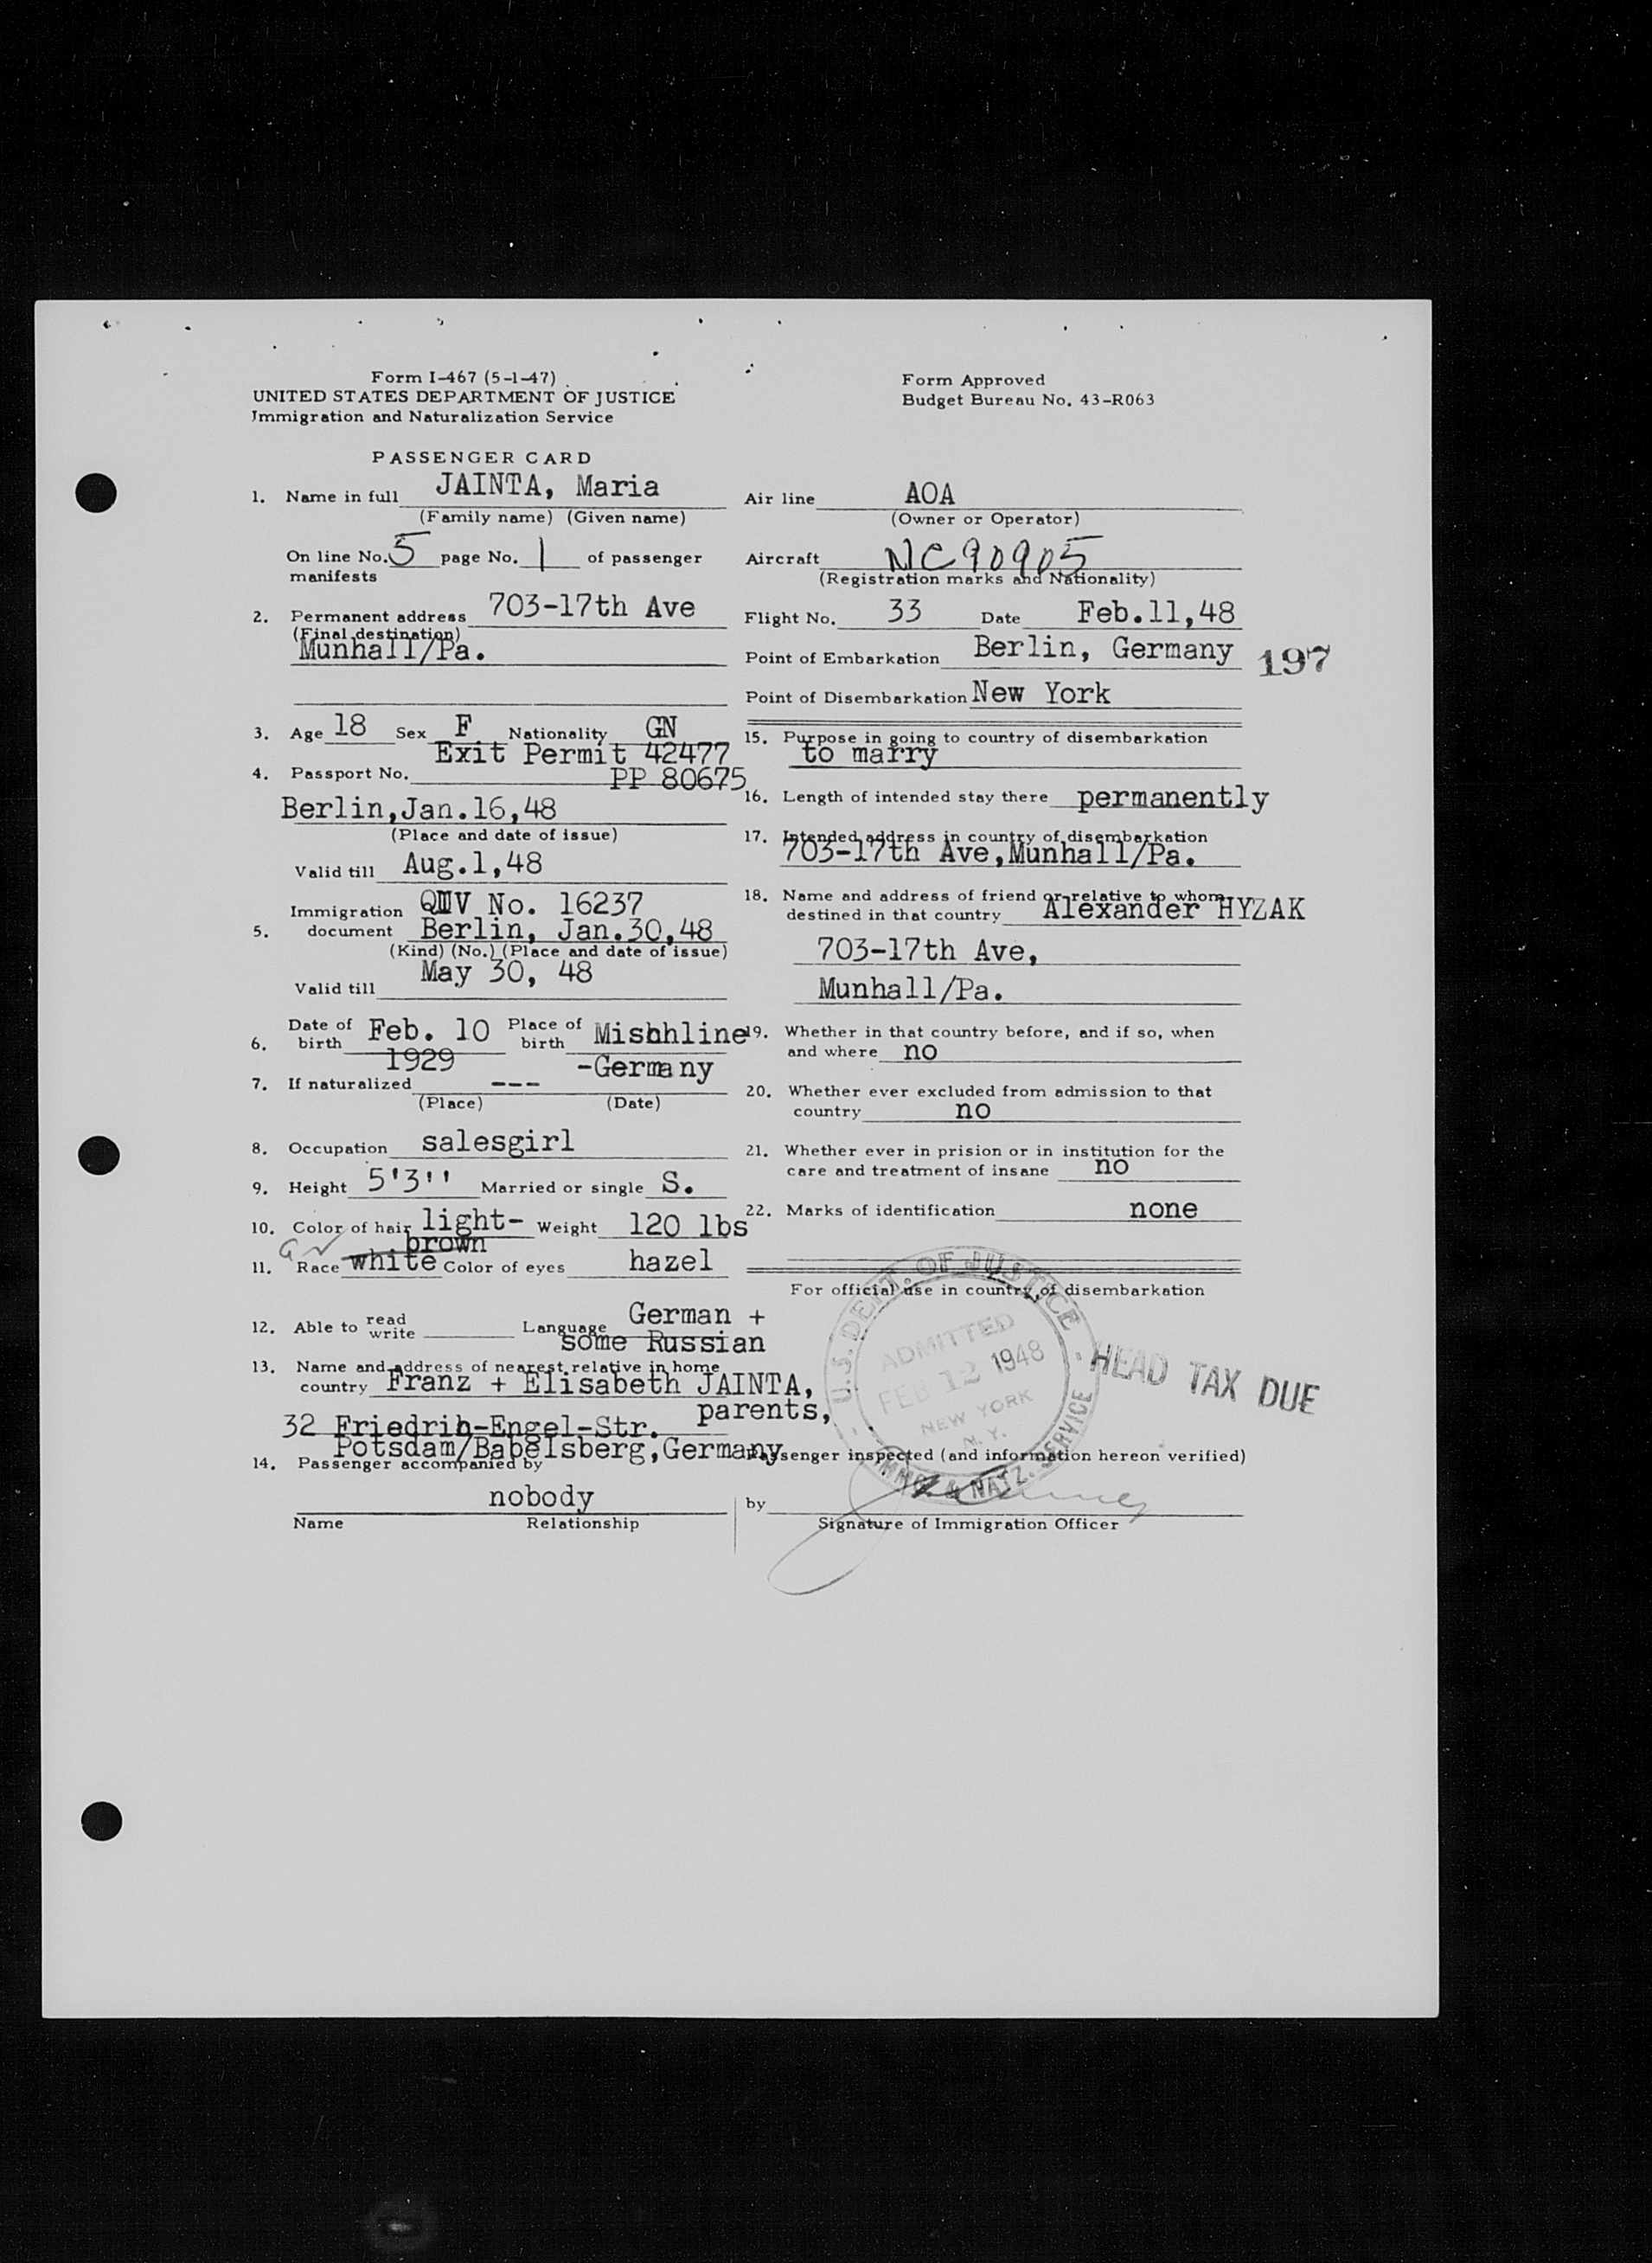 Form I-467 (5-1-47)
UNITED STATES DEPARTMENT OF JUSTICE
Immigration and Naturalization Service
Form Approved
Budget Bureau No. 43-R063
PASSENGER CARD
1. Name in full JAINTA, Maria
(Family name) (Given name)
On line No. 5 page No. 1 of passenger
manifests
2. Permanent address 703-17th Ave
(Final destination)
Munhall/Pa.
3. Age 18 Sex F Nationality GN
Exit Permit 42477
4. Passport No. PP 80675
Berlin,Jan.16,48
(Place and date of issue)
Valid till Aug.1,48
Immigration QIMV No. 16237
5. document Berlin, Jan.30,48
(Kind) (No.) (Place and date of issue)
Valid till May 30, 48
6. Date of birth Feb. 10 1929 Place of birth Mishhline
-Germany
7. If naturalized ---
(Place) (Date)
8. Occupation salesgirl
9. Height 5'3'' Married or single S.
10. Color of hair light- Weight 120 lbs
brown
11. Race white Color of eyes hazel
12. Able to read write Language German +
some Russian
13. Name and address of nearest relative in home
country Franz + Elisabeth JAINTA,
parents,
32 Friedrih-Engel-Str.
Potsdam/Babelsberg,Germany
14. Passenger accompanied by
nobody
Name Relationship
Air line AOA
(Owner or Operator)
Aircraft NC90905
(Registration marks and Nationality)
Flight No. 33 Date Feb.11,48
Point of Embarkation Berlin, Germany
197
Point of Disembarkation New York
15. Purpose in going to country of disembarkation
to marry
16. Length of intended stay there permanently
17. Intended address in country of disembarkation
703-17th Ave,Munhall/Pa.
18. Name and address of friend or relative to whom
destined in that country Alexander HYZAK
703-17th Ave,
Munhall/Pa.
19. Whether in that country before, and if so, when
and where no
20. Whether ever excluded from admission to that
country no
21. Whether ever in prision or in institution for the
care and treatment of insane no
22. Marks of identification none
For official use in country of disembarkation
U.S. DEPT. OF JUSTICE
ADMITTED
FEB 12 1948
NEW YORK
N.Y.
IMMG. & NATZ. SERVICE
HEAD TAX DUE
Passenger inspected (and information hereon verified)
by
Signature of Immigration Officer